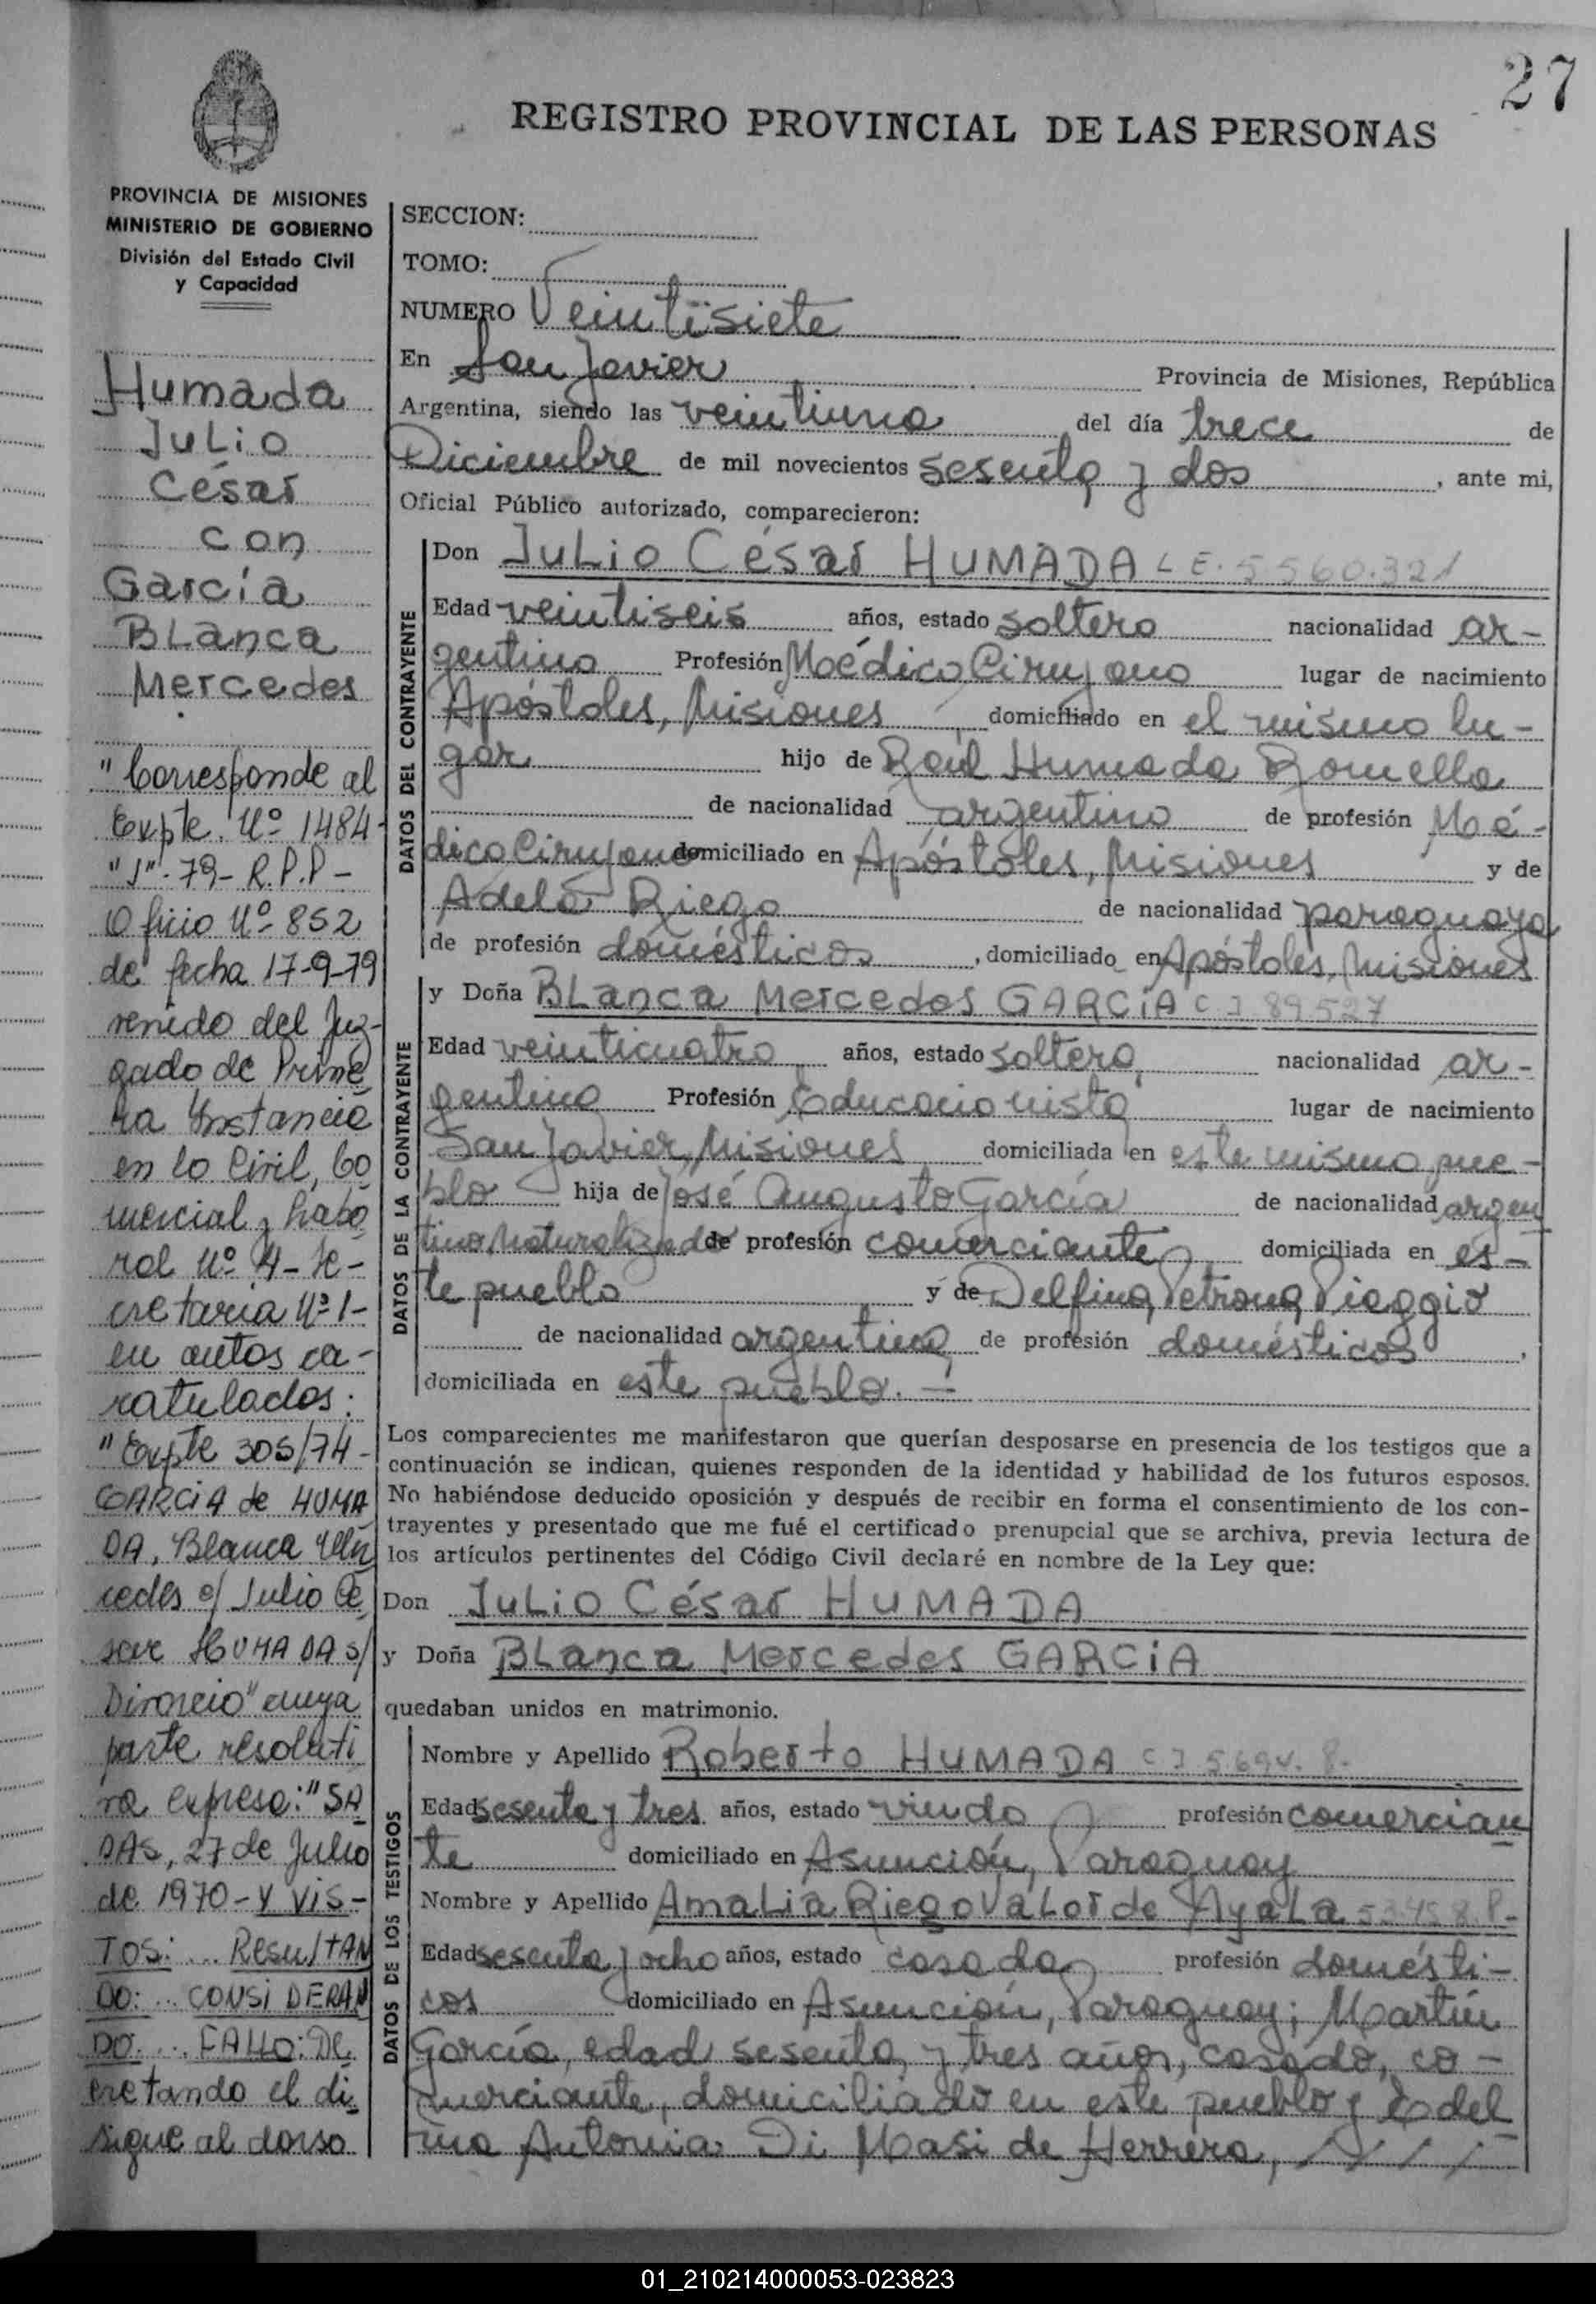 27
REGISTRO PROVINCIAL DE LAS PERSONAS
PROVINCIA DE MISIONES
MINISTERIO DE GOBIERNO
División del Estado Civil
y Capacidad
Humada
Julio
César
con
García
Blanca
Mercedes
"Corresponde al
Expte. Nº 1484-
"J"-79-R.P.P-
Oficio Nº 852
de fecha 17-9-79
venido del Juz-
gado de Prime
ra Instancia
en lo Civil, Co
mercial y Labo
ral Nº 4-Se-
cretaria Nº 1-
en autos ca-
ratulados:
"Expte 305/74-
GARCIA de HUMA
DA, Blanca Mer
cedes c/ Julio Cé
sar HUMADA s/
Divorcio" cuya
parte resoluti
va expresa: "SA
DAS, 27 de Julio
de 1970-Y VIS-
TOS:... RESULTAN
DO:... CONSIDERAN
DO:... FALLO: De
cretando el di
sigue al dorso
SECCION:
TOMO:
NUMERO Veintisiete
En San Javier Provincia de Misiones, República
Argentina, siendo las veintiuna del día trece de
Diciembre de mil novecientos sesenta y dos, ante mi,
Oficial Público autorizado, comparecieron:
DATOS DEL CONTRAYENTE
Don Julio César HUMADA L E. 5560.321
Edad veintiseis años, estado soltero nacionalidad ar-
gentino Profesión Médico Cirujano lugar de nacimiento
Apóstoles, Misiones domiciliado en el mismo lu-
gar hijo de Raúl Humada Romella
de nacionalidad argentino de profesión Mé-
dico Cirujano domiciliado en Apóstoles, Misiones y de
Adela Riego de nacionalidad paraguaya
de profesión domésticos, domiciliado en Apóstoles, Misiones
DATOS DE LA CONTRAYENTE
y Doña Blanca Mercedes GARCíA C I 89527
Edad veinticuatro años, estado soltera nacionalidad ar-
gentina Profesión Educacionista lugar de nacimiento
San Javier, Misiones domiciliada en este mismo pue-
blo hija de José Augusto García de nacionalidad argen
tino Naturalizado de profesión comerciante domiciliada en es-
te pueblo y de Delfina Petrona Pieggio
de nacionalidad argentina de profesión domésticos,
domiciliada en este pueblo. -
Los comparecientes me manifestaron que querían desposarse en presencia de los testigos que a
continuación se indican, quienes responden de la identidad y habilidad de los futuros esposos.
No habiéndose deducido oposición y después de recibir en forma el consentimiento de los con-
trayentes y presentado que me fué el certificado prenupcial que se archiva, previa lectura de
los artículos pertinentes del Código Civil declaré en nombre de la Ley que:
Don Julio César HUMADA
y Doña Blanca Mercedes GARCíA
quedaban unidos en matrimonio.
DATOS DE LOS TESTIGOS
Nombre y Apellido Roberto HUMADA C I
Edad sesenta y tres años, estado viudo profesión comercian
te domiciliado en Asunción, Paraguay
Nombre y Apellido Amalia Riego Valor de Ayala
Edad sesenta y ocho años, estado casada profesión domésti-
cos domiciliado en Asunción, Paraguay; Martín
García, edad sesenta y tres años, casado, co-
merciante, domiciliado en este pueblo y Edel
ma Antonia Di Masi de Herrera, ////
01_210214000053-023823